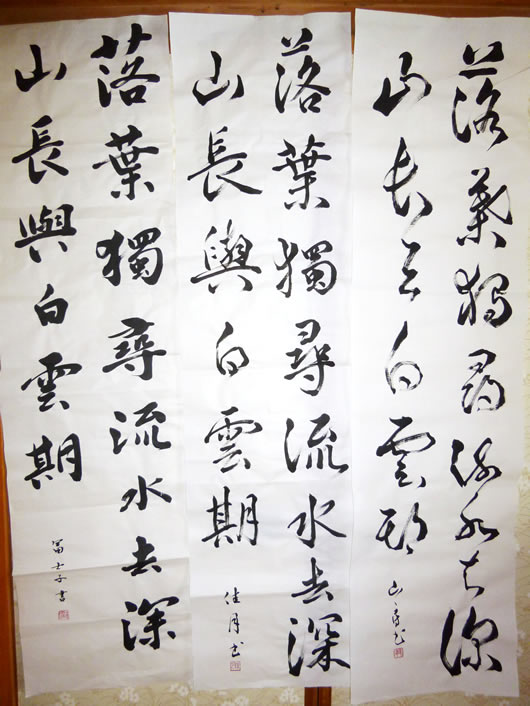 落葉獨尋流水去深
山長与白雲期
落葉獨尋流水去深
山長與白雲期
佳月书
落葉獨尋流水去深
山長與白雲期
冨士子書